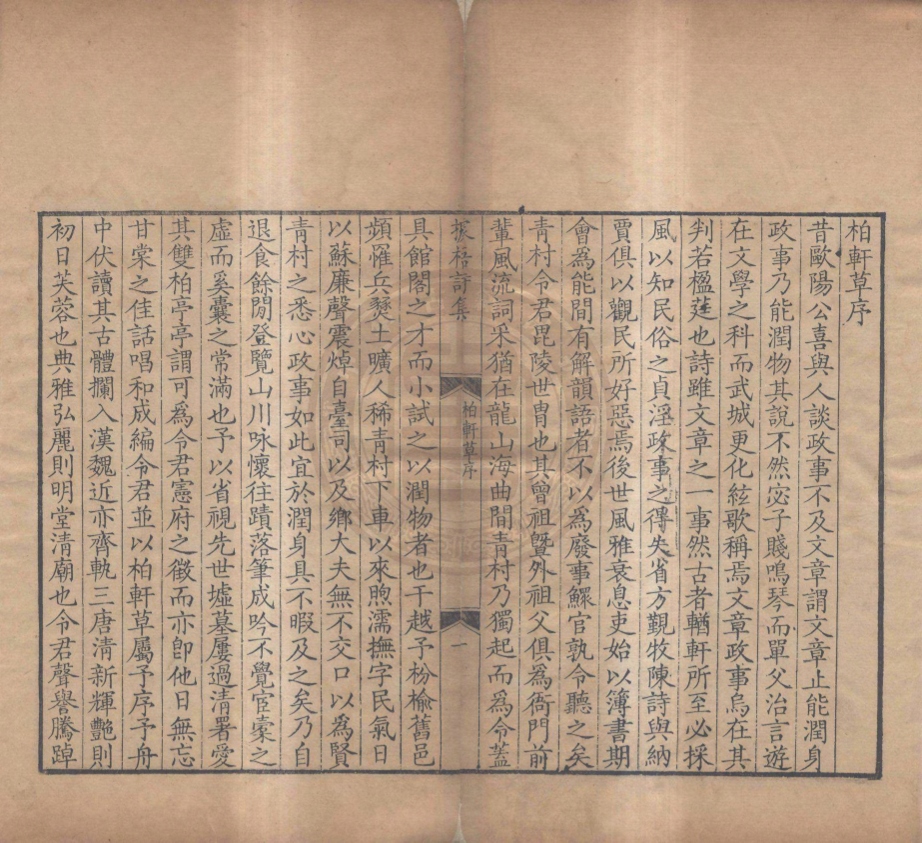 柏軒草序
昔歐陽公喜與人談政事不及文章謂文章止能潤身
政事乃能潤物其說不然宓子賤鳴琴而單父治言遊
在文學之科而武城更化絃歌稱焉文章政事烏在其
判若楹莛也詩雖文章之一事然古者輶軒所至必採
風以知民俗之貞淫政事之得失省方觀牧陳詩與納
賈俱以觀民所好惡焉後世風雅衰息吏始以簿書期
會為能間有解韻語者不以為廢事鰥官孰令聽之矣
青村令君毘陵世胄也其曾祖曁外祖父俱為衙門前
輩風流詞采猶在龍山海曲間青村乃獨起而為令蓋
詩集
柏軒草序
一
具館閣之才而小試之以潤物者也干越予枌榆舊邑
頻罹兵燹土曠人稀青村下車以來煦濡撫字民氣日
以蘇廉聲震焯自臺司以及鄉大夫無不交口以為賢
青村之悉心政事如此宜於潤身具不暇及之矣乃自
退食餘閒登覽山川咏懷往蹟落筆成吟不覺宦橐之
虛而奚囊之常滿也予以省視先世墟墓屢過清署愛
其雙柏亭亭謂可為令君憲府之徵而亦卽他日無忘
甘棠之佳話唱和成編令君並以柏軒草屬予序予舟
中伏讀其古體攔入漢魏近亦齊軌三唐清新輝艷則
初日芙蓉也典雅弘麗則明堂清廟也令君聲譽騰踔